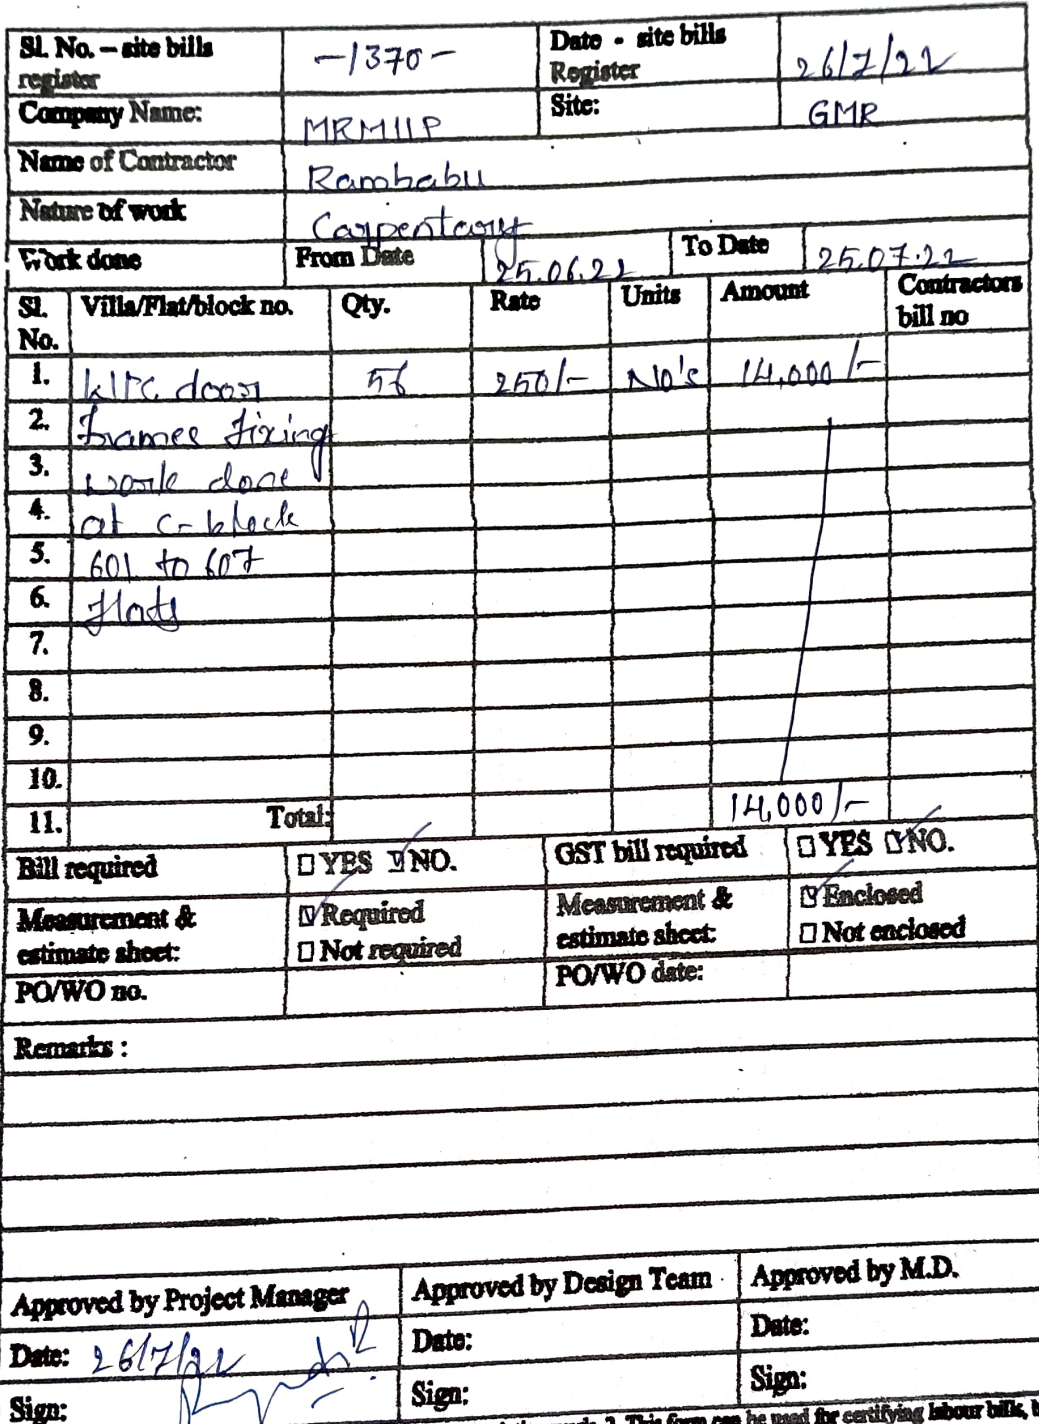 Sl. No. – site bills register -1370- Date - site bills Register 26/7/22
Company Name: MRMIIP Site: GMR
Name of Contractor Rambabu
Nature of work Carpentary
Work done From Date 25.06.22 To Date 25.07.22
Sl. No. Villa/Flat/block no. Qty. Rate Units Amount Contractors bill no
1. door 56 250/- No's 14,000/-
2. frames fixing
3. work done
4. at C-block
5. 601 to 607
6. flats
7.
8.
9.
10.
11. Total: 14,000/-
Bill required YES NO. GST bill required YES NO.
Measurement & estimate sheet: Required Measurement & estimate sheet: Enclosed
Not required Not enclosed
PO/WO no. PO/WO date:
Remarks :
Approved by Project Manager Approved by Design Team Approved by M.D.
Date: 26/7/22 Date: Date:
Sign: Sign: Sign:
2. This form can be used for certifying labour bills,